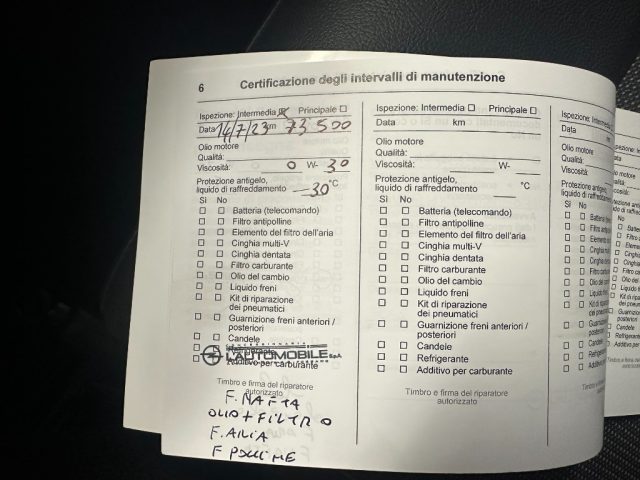 6 Certificazione degli intervalli di manutenzione
Ispezione: Intermedia Principale
Data 14/7/23 km 73500
Olio motore
Qualità:
Viscosità: 0 W- 30
Protezione antigelo,
liquido di raffreddamento -30 °C
Sì No
Batteria (telecomando)
Filtro antipolline
Elemento del filtro dell'aria
Cinghia multi-V
Cinghia dentata
Filtro carburante
Olio del cambio
Liquido freni
Kit di riparazione
dei pneumatici
Guarnizione freni anteriori /
posteriori
Candele
L'AUTOMOBILE S.p.A.
Additivo per carburante
Timbro e firma del riparatore
autorizzato
F. NAFTA
OLIO + FILTRO
F. ARIA
F POLLINE
Ispezione: Intermedia Principale
Data km
Olio motore
Qualità:
Viscosità: W-
Protezione antigelo,
liquido di raffreddamento °C
Sì No
Batteria (telecomando)
Filtro antipolline
Elemento del filtro dell'aria
Cinghia multi-V
Cinghia dentata
Filtro carburante
Olio del cambio
Liquido freni
Kit di riparazione
dei pneumatici
Guarnizione freni anteriori /
posteriori
Candele
Refrigerante
Additivo per carburante
Timbro e firma del riparatore
autorizzato
Ispezione: Inter
Data
Olio motore
Qualità:
Viscosità:
Protezione anti
liquido di raffre
Sì No
Batteria
Filtro an
Element
Cinghia
Cinghia
Filtro ca
Olio del
Liquido
Kit di rip
dei pneu
Guarniz
posterio
Candele
Refriger
Additivo
Timbro e firm